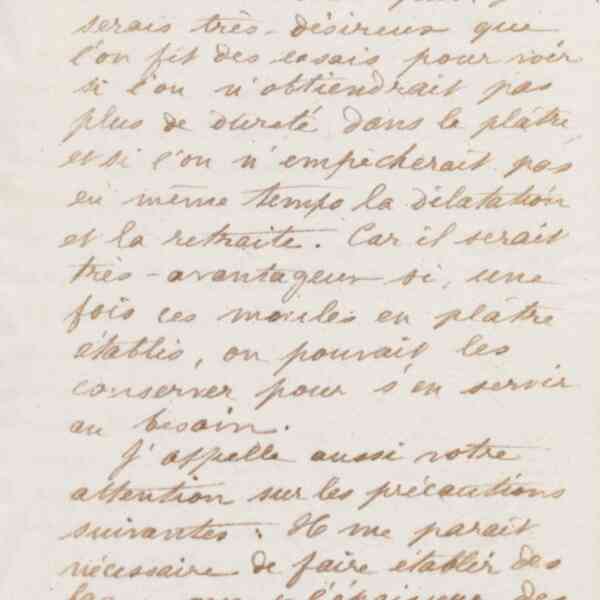 serais très-désireux que
l'on fit des essais pour voir
si l'on n'obtiendrait pas
plus de dureté dans le plâtre
et si l'on n'empêcherait pas
en même temps la dilatation
et la retraite. Car il serait
très-avantageux si, une
fois ces moules en plâtre
établis, on pouvait les
conserver pour s'en servir
au besoin.
J'appelle aussi votre
attention sur les précautions
suivantes : Il me parait
nécessaire de faire établir des
l'épaisseur des